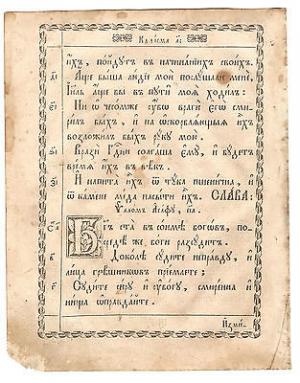 Каѳі́сма а҃і.
и҆̀хъ, по́йдꙋтъ въ начина́нїихъ свои́хъ.
д҃і А҆́ще бы́ша лю́дїе мои̑ послꙋ́шали менѐ,
І҆и҃ль а҆́ще бы въ пꙋти̑ моѧ̑ ходи́лъ:
е҃і Ни ѡ҆ чесо́мже ᲂу҆́бѡ врагѝ є҆гѡ̀ сми-
ри́лъ бы́хъ, и҆ на ѡ҆скорблѧ́ющыѧ и҆̀хъ
возложи́лъ бы́хъ рꙋ́кꙋ мою̀.
ѕ҃і Вразѝ гдⷭ҇ни солга́ша є҆мꙋ̀, и҆ бꙋ́детъ
вре́мѧ и҆̀хъ въ вѣ́къ.
з҃і И҆ напита̀ и҆̀хъ ѿ тꙋ́ка пшени́чна, и҆
ѿ ка́мене ме́да насы́ти и҆̀хъ. СЛА́ВА:
Ѱало́мъ А҆са́фꙋ, п҃а.
Бг҃ъ ста̀ въ со́нмѣ богѡ́въ, по-
средѣ́ же бо́ги разсꙋ́дитъ.
в҃ Доко́лѣ сꙋ́дите непра́вдꙋ, и҆
ли́ца грѣ́шникѡвъ прїе́млете;
г҃ Сꙋди́те си́рꙋ и҆ ᲂу҆бо́гꙋ, смире́нна и҆
ни́ща ѡ҆правда́йте.
И҆зми́